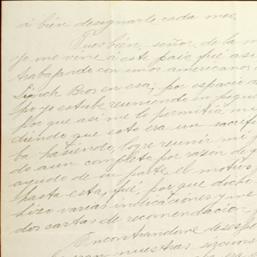 á bien designarle cada mes.
Pues bien, señor de la m
yo me vine á este país fué así
trabajando con unos americanos
Linch Bros en esa; por espacio
po yo estube reuniendo
por que así me lo permitía mi
diendo que esto era un sacrif
ba haciendo, logré reunir mi
do aun completo por razon de
ayude de su parte el motivo
hasta esta, fué, por que dicho
hizo varias indicaciones y me
dos cartas de recomendacion
Encontrandome deses
nuestras